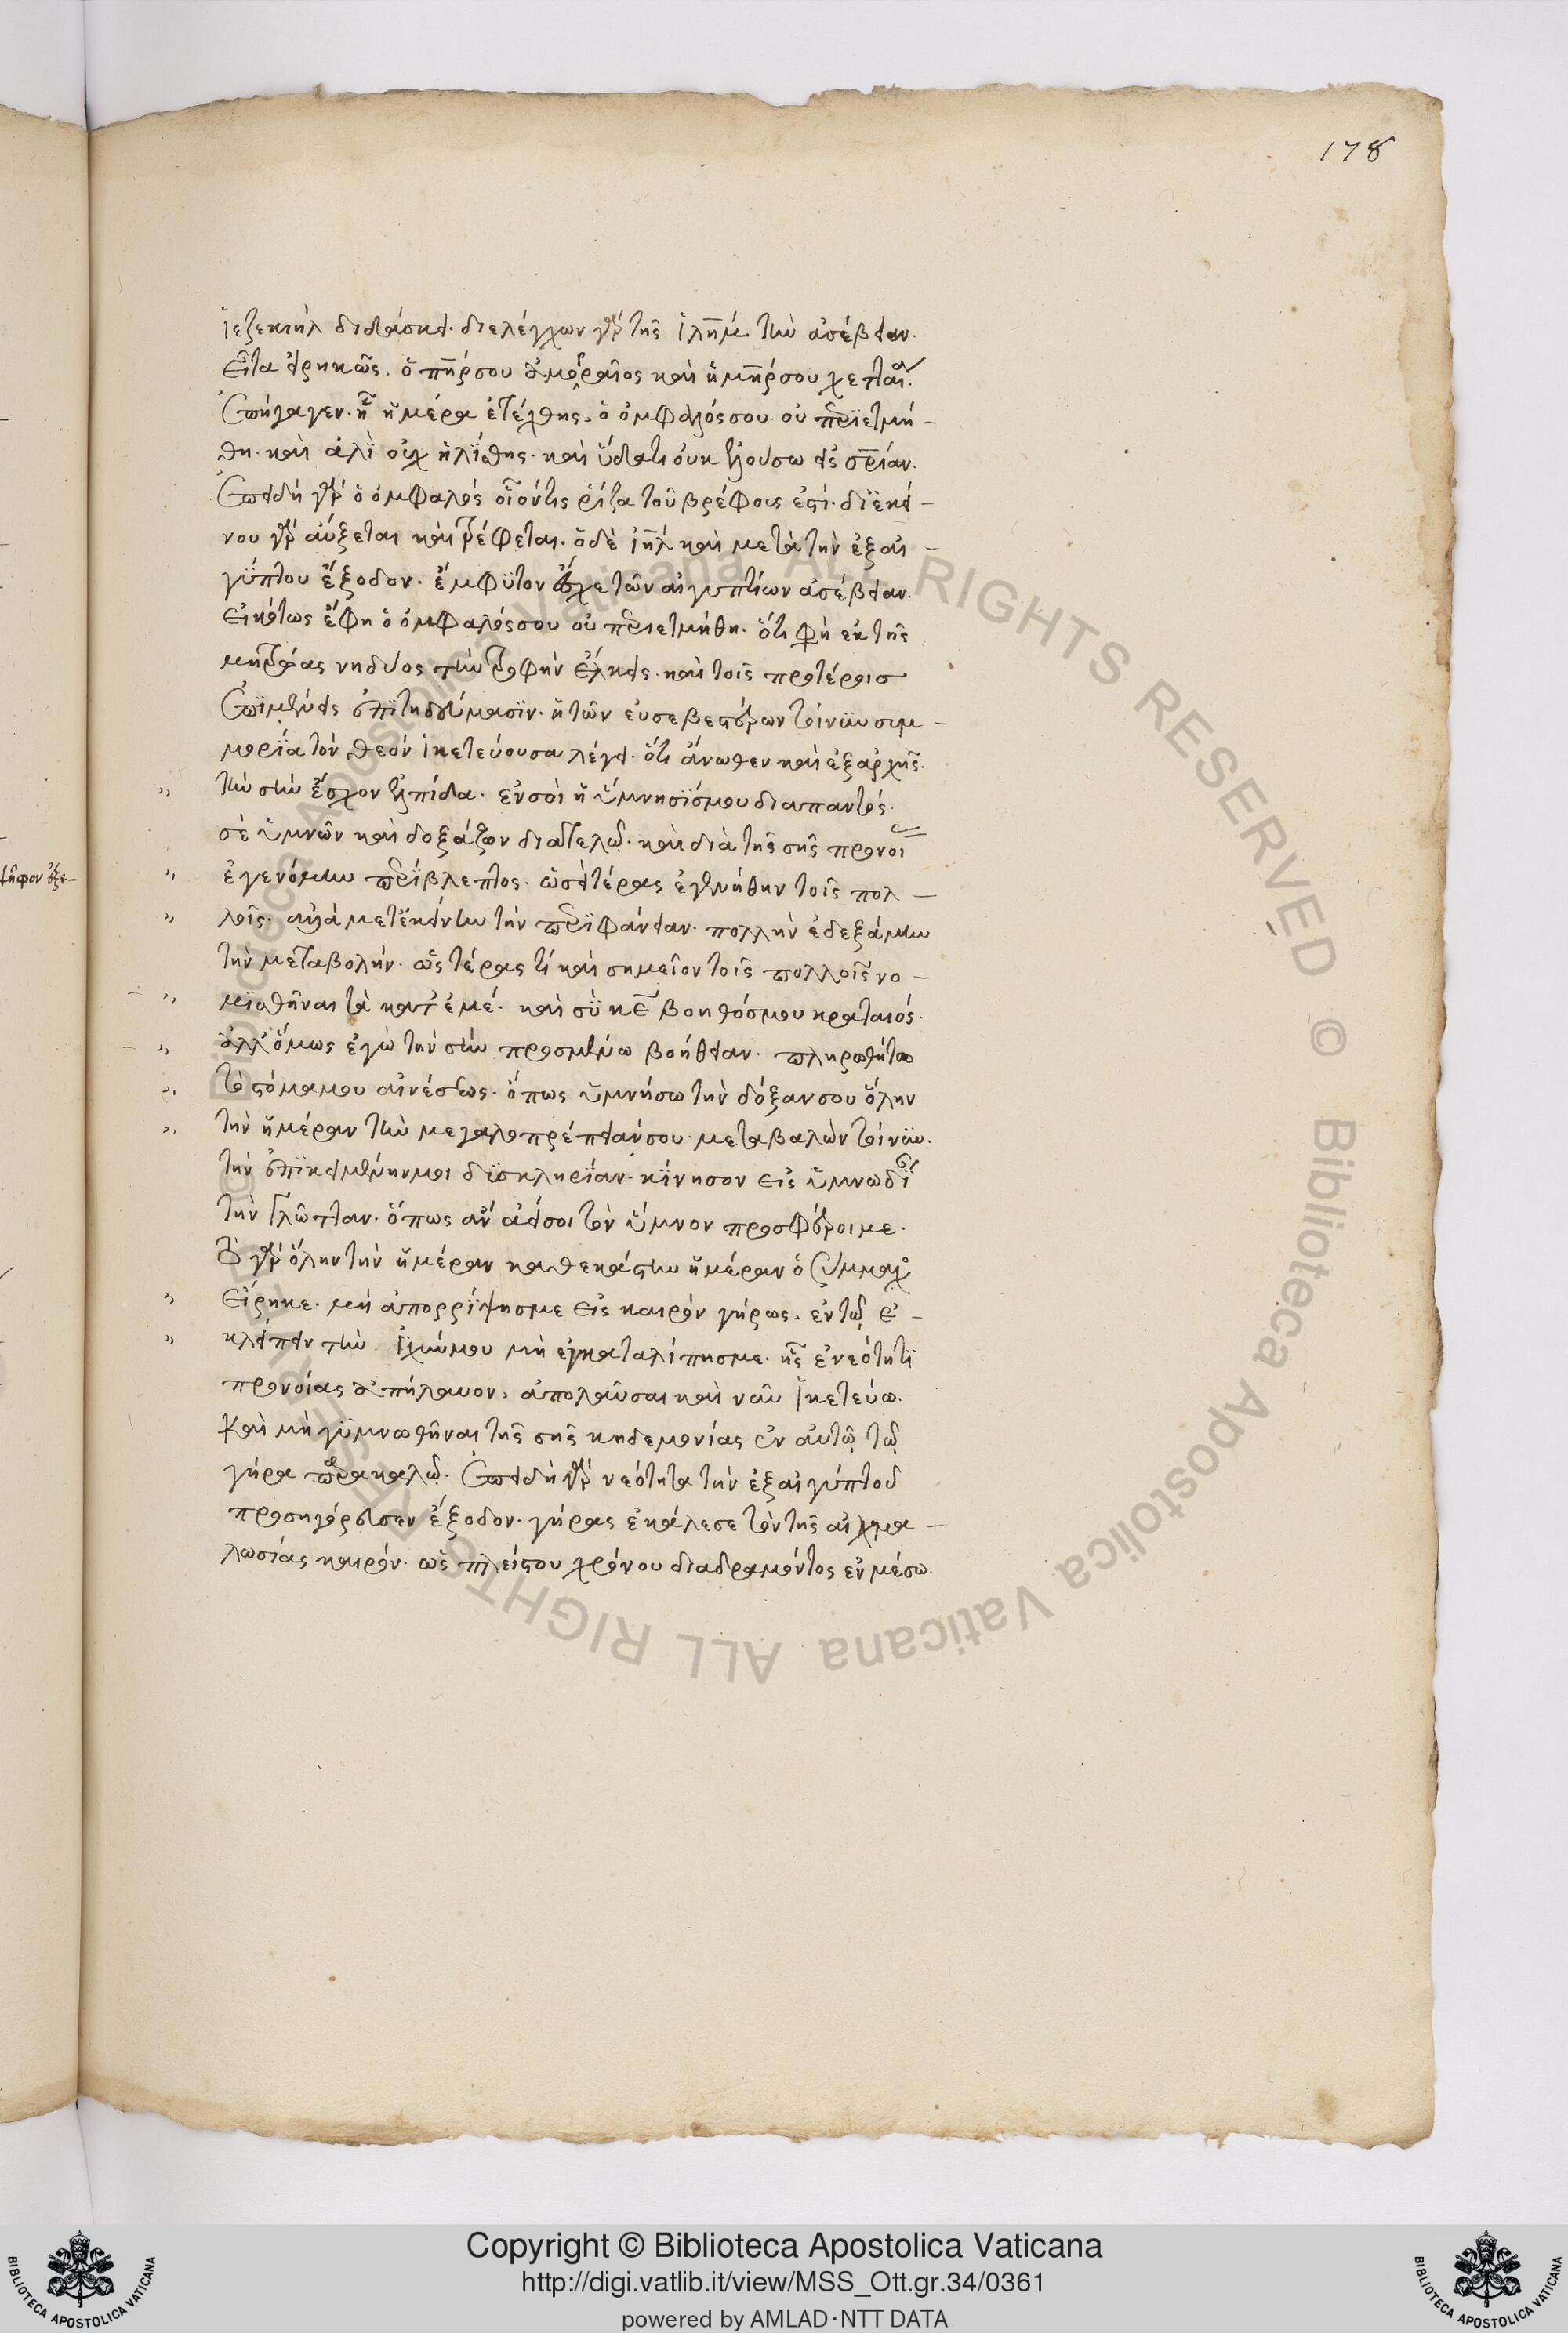 178
ἰεζεκιὴλ διδάσκει. διελέγχων γὰρ τῆς ἰλημ τὴν ἀσέβειαν.
εἶτα εἰρηκὼς. ὁ πηρ σου ἀμορραῖος καὶ ἡ μηρ σου χετταία.
ἐπήγαγεν. ἦ ἡμέρα ἐτέχθης. ὁ ὀμφαλός σου οὐ περιετμή-
θη. καὶ ἁλὶ οὐχ ἡλίσθης. καὶ ὕδατι οὐκ ἐλούσω εἰς σριαν.
ἐπειδὴ γὰρ ὁ ὀμφαλὸς οἷόν τις ρίζα τοῦ βρέφους ἐστί. δι ἐκεί-
νου γὰρ αὔξεται καὶ τρέφεται. ὁ δὲ ιηλ καὶ μετὰ τὴν ἐξ αἰ-
γύπτου ἔξοδον. ἔμφυτον εἶχε τῶν αἰγυπτίων ἀσέβειαν.
εἰκότως ἔφη ὁ ὀμφαλός σου οὐ περιετμήθη. ὅτι φὴ ἐκ τῆς
μητρώας νηδύος τὴν τροφὴν ἕλκεις. καὶ τοῖς προτέροισ
ἐπιμένεις ἐπιτηδεύμασιν. ἡ τῶν εὐσεβεστέρων τοίνυν συμ-
μορία τὸν θεὸν ἱκετεύουσα λέγει. ὅτι ἄνωθεν καὶ ἐξ ἀρχῆς.
τὴν σὴν ἔσχον ἐλπίδα. ἐν σοὶ ἡ ὕμνησίς μου διαπαντός.
σὲ ὑμνῶν καὶ δοξάζων διατελῶ. καὶ διὰ τῆς σῆς προνοί
ἐγενόμην περίβλεπτος. ὡσεὶ τέρας ἐγενήθην τοῖς πολ-
λοῖς. ἀλλὰ μετ ἐκείνην τὴν περιφάνειαν. πολλὴν ἐδεξάμην
τὴν μεταβολήν. ὡς τέρας τί καὶ σημεῖον τοῖς πολλοῖς νο-
μισθῆναι τὰ κατ ἐμέ. καὶ σὺ κε βοηθός μου κραταιός.
ἀλλ ὅμως ἐγὼ τὴν σὴν προσμένω βοήθειαν. πληρωθήτω
τὸ στόμα μου αἰνέσεως. ὅπως ὑμνήσω τὴν δόξαν σου ὅλην
τὴν ἡμέραν τὴν μεγαλοπρέπειάν σου. μεταβαλὼν τοίνυν.
τὴν ἐπικειμένην μοι δυσκληρίαν. κίνησον εἰς ὑμνωδί
τὴν γλῶτταν. ὅπως ἂν ἀεί σοι τὸν ὕμνον προσφέροιμε.
τὸ γὰρ ὅλην τὴν ἡμέραν καθ εκάστην ἡμέραν ὁ σύμμαχο
εἴρηκε. μὴ ἀπορρίψης με εἰς καιρὸν γήρως. ἐν τῶ ἐ-
κλείπειν τὴν ἰσχύν μου μὴ ἐγκαταλίπης με. ἧς ἐν νεότητι
προνοίας ἀπήλαυον. ἀπολαῦσαι καὶ νῦν ἱκετεύω.
καὶ μὴ γυμνωθῆναι τῆς σῆς κηδεμονίας ἐν αὐτῶ τῶ
γήρα παρακαλῶ. ἐπειδὴ γὰρ νεότητα τὴν ἐξ αἰγύπτου
προσηγόρευσεν ἔξοδον. γήρας ἐκάλεσε τὸν τῆς αἰχμα-
λωσίας καιρόν. ὡς πλείστου χρόνου διαδραμόντος ἐν μέσω.
Copyright © Biblioteca Apostolica Vaticana
http://digi.vatlib.it/view/MSS_Ott.gr.34/0361
powered by AMLAD·NTT DATA